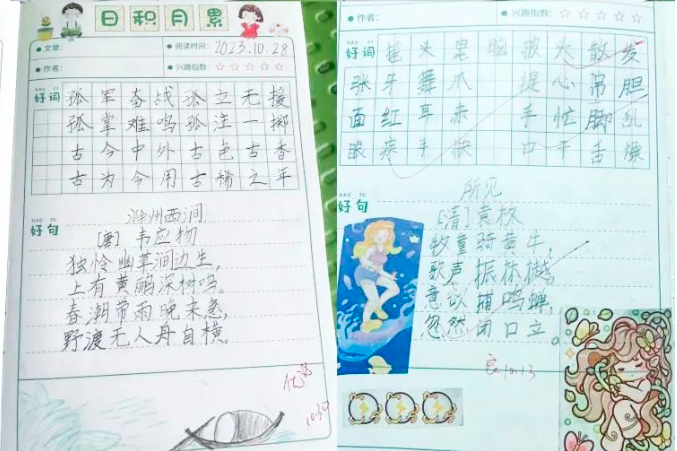 日积月累
文章：
阅读时间：2023.10.28
作者：
兴趣指数：☆☆☆☆☆
好词
孤军奋战孤立无援
孤掌难鸣孤注一掷
古今中外古色古香
古为今用古稀之年
好句
滁州西涧
[唐]韦应物
独怜幽草涧边生，
上有黄鹂深树鸣。
春潮带雨晚来急，
野渡无人舟自横。
优
10.30
作者：
兴趣指数：☆☆☆☆☆
好词
摇头晃脑披头散发
张牙舞爪 提心吊胆
面红耳赤 手忙脚乱
眼疾手快 口干舌燥
好句
所见
[清]袁枚
牧童骑黄牛，
歌声振林樾。
意欲捕鸣蝉，
忽然闭口立。
10.13